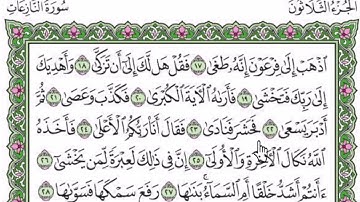 الجُزْءُ الثَّلَاثُونَ
سُورَةُ النَّازِعَاتِ
ٱذْهَبْ إِلَىٰ فِرْعَوْنَ إِنَّهُۥ طَغَىٰ ١٧ فَقُلْ هَل لَّكَ إِلَىٰٓ أَن تَزَكَّىٰ ١٨ وَأَهْدِيَكَ
إِلَىٰ رَبِّكَ فَتَخْشَىٰ ١٩ فَأَرَىٰهُ ٱلْأٓيَةَ ٱلْكُبْرَىٰ ٢٠ فَكَذَّبَ وَعَصَىٰ ٢١ ثُمَّ
أَدْبَرَ يَسْعَىٰ ٢٢ فَحَشَرَ فَنَادَىٰ ٢٣ فَقَالَ أَنَا۠ رَبُّكُمُ ٱلْأَعْلَىٰ ٢٤ فَأَخَذَهُ
ٱللَّهُ نَكَالَ ٱلْأٓخِرَةِ وَٱلْأُولَىٰٓ ٢٥ إِنَّ فِي ذَٰلِكَ لَعِبْرَةً لِّمَن يَخْشَىٰٓ ٢٦
ءَأَنتُمْ أَشَدُّ خَلْقًا أَمِ ٱلسَّمَآءُ بَنَىٰهَا ٢٧ رَفَعَ سَمْكَهَا فَسَوَّىٰهَا ٢٨